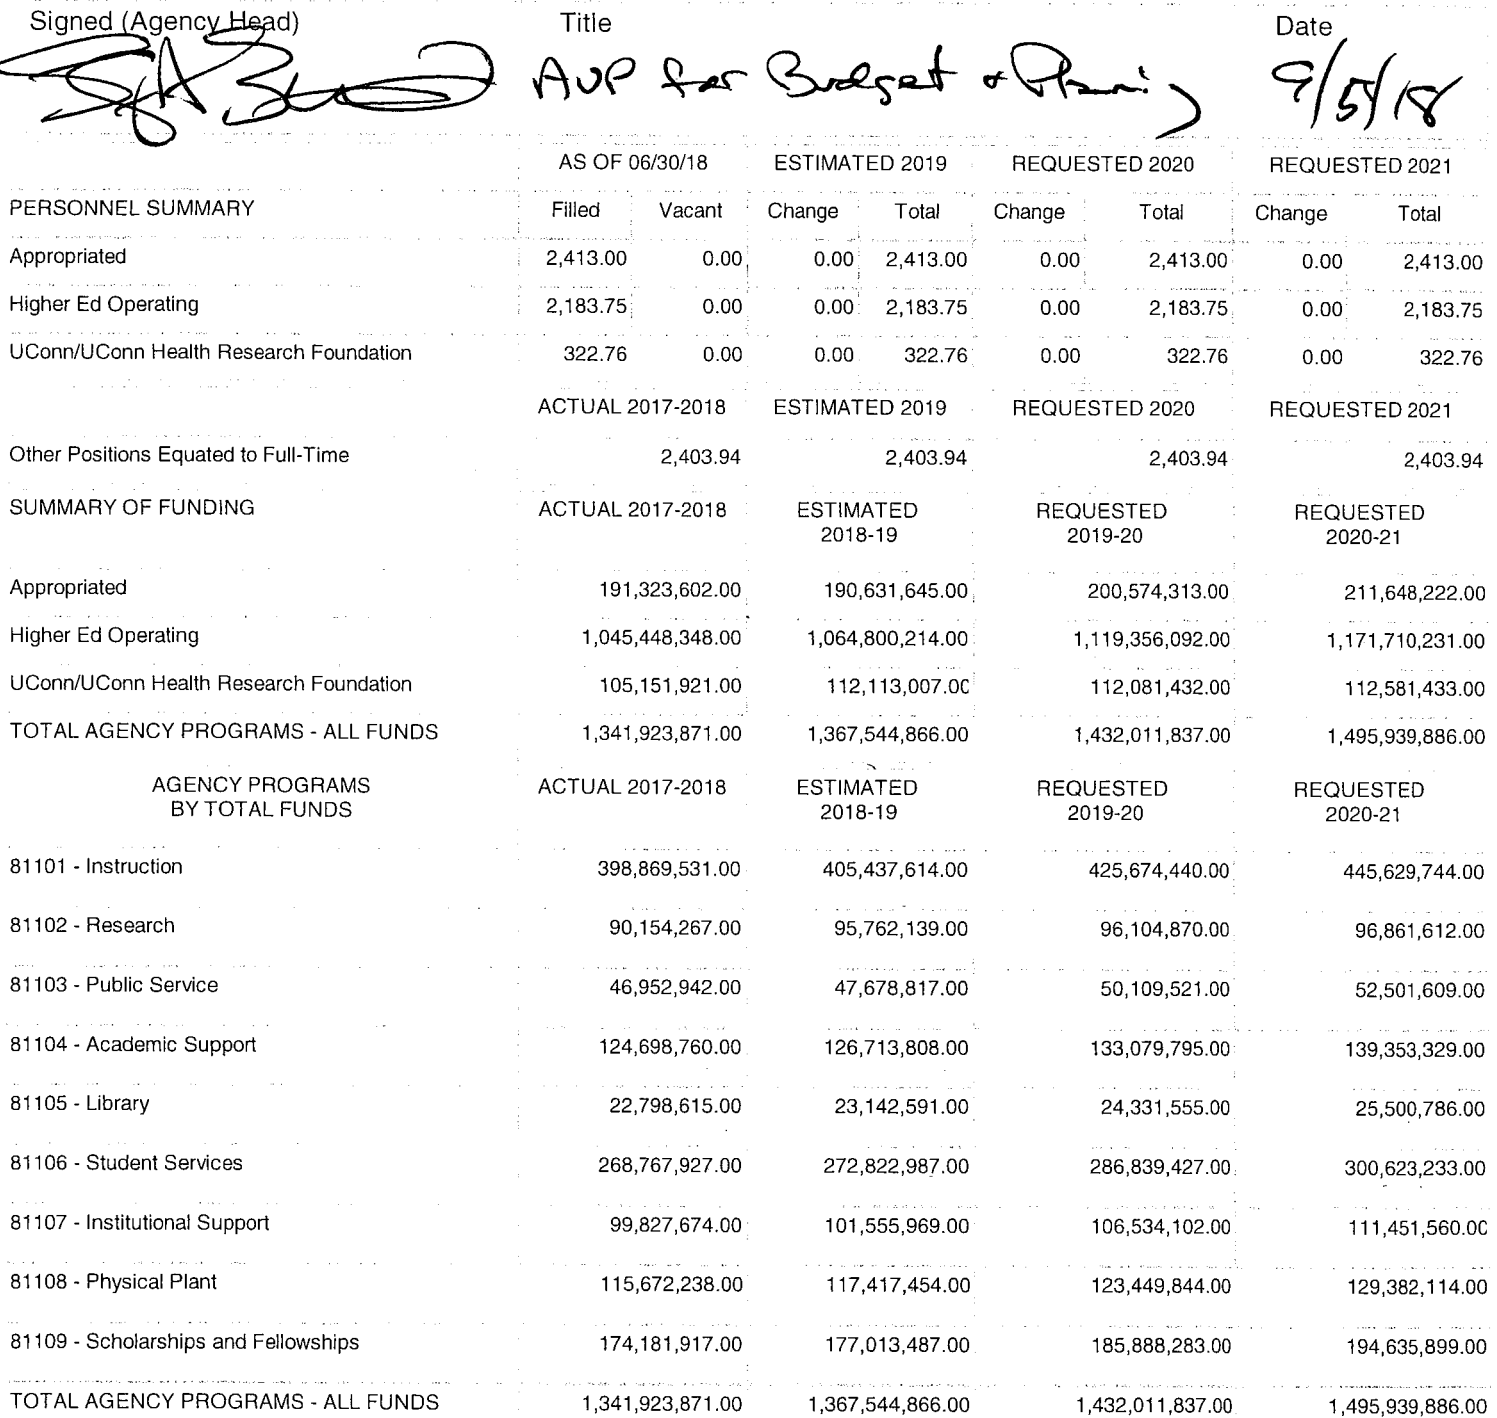 Signed (Agency Head) Title Date
AVP for Budget & Planning 9/5/18
AS OF 06/30/18 ESTIMATED 2019 REQUESTED 2020 REQUESTED 2021
PERSONNEL SUMMARY Filled Vacant Change Total Change Total Change Total
Appropriated 2,413.00 0.00 0.00 2,413.00 0.00 2,413.00 0.00 2,413.00
Higher Ed Operating 2,183.75 0.00 0.00 2,183.75 0.00 2,183.75 0.00 2,183.75
UConn/UConn Health Research Foundation 322.76 0.00 0.00 322.76 0.00 322.76 0.00 322.76
ACTUAL 2017-2018 ESTIMATED 2019 REQUESTED 2020 REQUESTED 2021
Other Positions Equated to Full-Time 2,403.94 2,403.94 2,403.94 2,403.94
SUMMARY OF FUNDING ACTUAL 2017-2018 ESTIMATED REQUESTED REQUESTED
2018-19 2019-20 2020-21
Appropriated 191,323,602.00 190,631,645.00 200,574,313.00 211,648,222.00
Higher Ed Operating 1,045,448,348.00 1,064,800,214.00 1,119,356,092.00 1,171,710,231.00
UConn/UConn Health Research Foundation 105,151,921.00 112,113,007.00 112,081,432.00 112,581,433.00
TOTAL AGENCY PROGRAMS - ALL FUNDS 1,341,923,871.00 1,367,544,866.00 1,432,011,837.00 1,495,939,886.00
AGENCY PROGRAMS ACTUAL 2017-2018 ESTIMATED REQUESTED REQUESTED
BY TOTAL FUNDS 2018-19 2019-20 2020-21
81101 - Instruction 398,869,531.00 405,437,614.00 425,674,440.00 445,629,744.00
81102 - Research 90,154,267.00 95,762,139.00 96,104,870.00 96,861,612.00
81103 - Public Service 46,952,942.00 47,678,817.00 50,109,521.00 52,501,609.00
81104 - Academic Support 124,698,760.00 126,713,808.00 133,079,795.00 139,353,329.00
81105 - Library 22,798,615.00 23,142,591.00 24,331,555.00 25,500,786.00
81106 - Student Services 268,767,927.00 272,822,987.00 286,839,427.00 300,623,233.00
81107 - Institutional Support 99,827,674.00 101,555,969.00 106,534,102.00 111,451,560.00
81108 - Physical Plant 115,672,238.00 117,417,454.00 123,449,844.00 129,382,114.00
81109 - Scholarships and Fellowships 174,181,917.00 177,013,487.00 185,888,283.00 194,635,899.00
TOTAL AGENCY PROGRAMS - ALL FUNDS 1,341,923,871.00 1,367,544,866.00 1,432,011,837.00 1,495,939,886.00